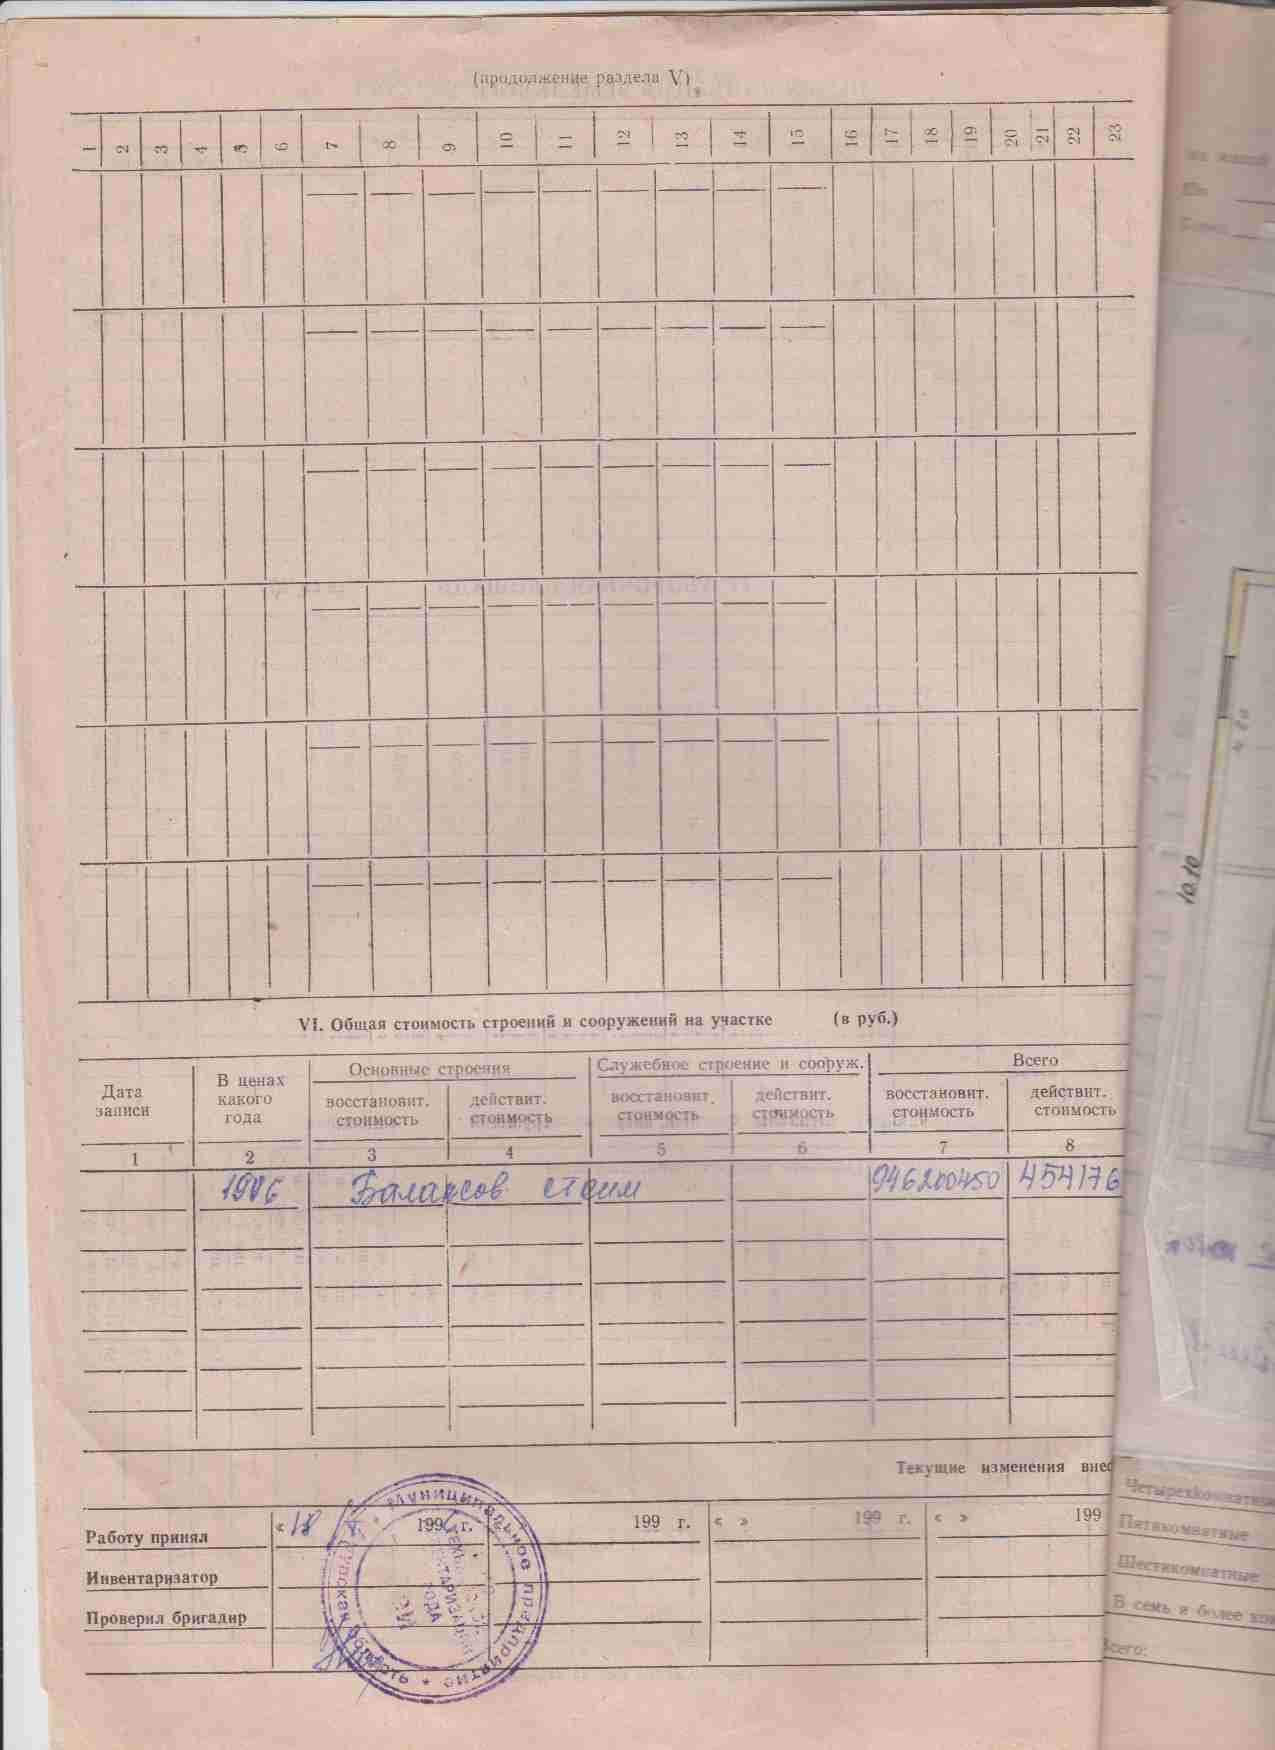 (продолжение раздела V)
1 2 3 4 5 6 7 8 9 10 11 12 13 14 15 16 17 18 19 20 21 22 23
VI. Общая стоимость строений и сооружений на участке (в руб.)
Дата записи
В ценах какого года
Основные строения
Служебное строение и сооруж.
Всего
восстановит. стоимость
действит. стоимость
восстановит. стоимость
действит. стоимость
восстановит. стоимость
действит. стоимость
1 2 3 4 5 6 7 8
Балансов стоим 946200450 454176
Текущие изменения внес
Работу принял « 18 199 г. 199 г. « » 199 г. « » 199
Инвентаризатор
Проверил бригадир
Муниципальное предприятие
область
10.10
Четырехкомнатные
Пятикомнатные
Шестикомнатные
В семь и более ком
Всего: